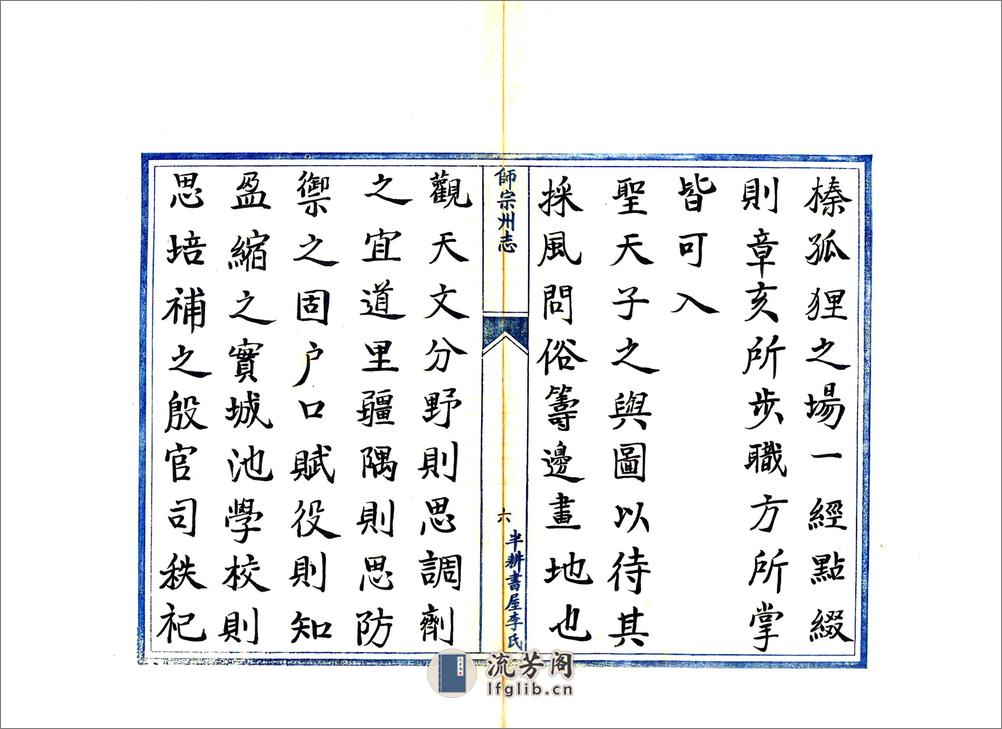 榛狐狸之場一經點綴
則章亥所步職方所掌
皆可入
聖天子之輿圖以待其
採風問俗籌邊畫地也
師宗州志
六
半耕書屋李氏
觀天文分野則思調劑
之宜道里疆隅則思防
禦之固户口賦役則知
盈縮之實城池學校則
思培補之殷官司秩祀
流芳阁
lfglib.cn